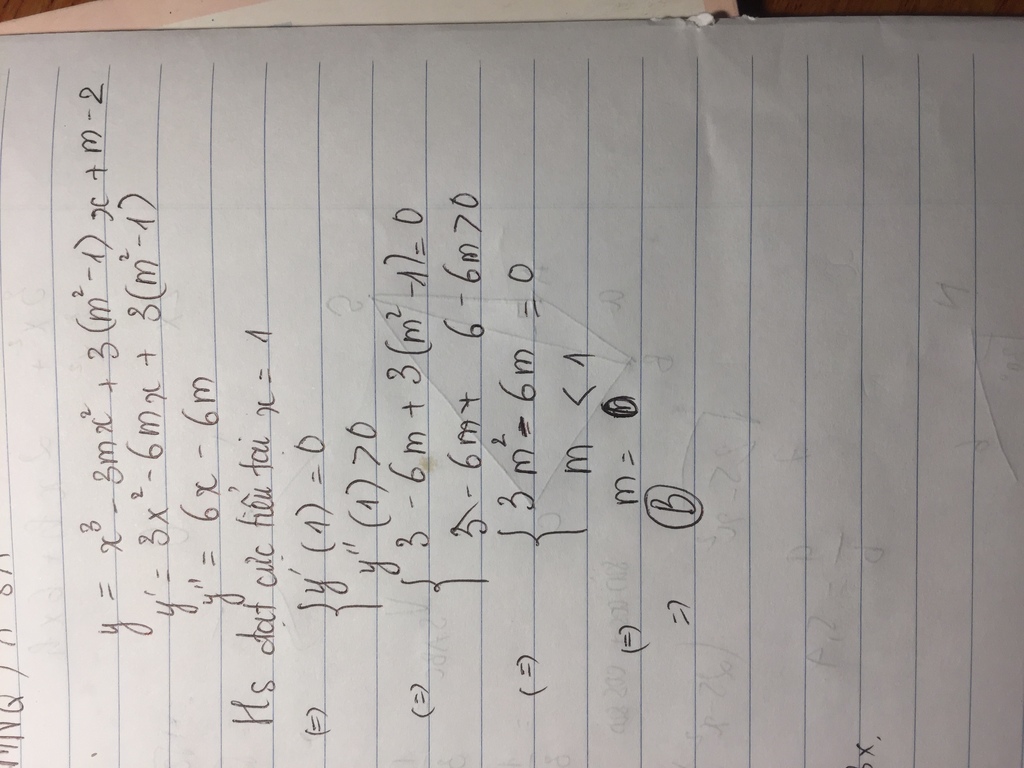 y = x³ - 3mx² + 3(m² - 1)x + m - 2
y' = 3x² - 6mx + 3(m² - 1)
y'' = 6x - 6m
Hs đạt cực tiểu tại x = 1
(=) { y'(1) = 0
y''(1) > 0
(=) { 3 - 6m + 3(m² - 1) = 0
3 - 6m + 6 - 6m > 0
(=) { 3m² - 6m = 0
m < 1
(=) m = 0
=) (B)